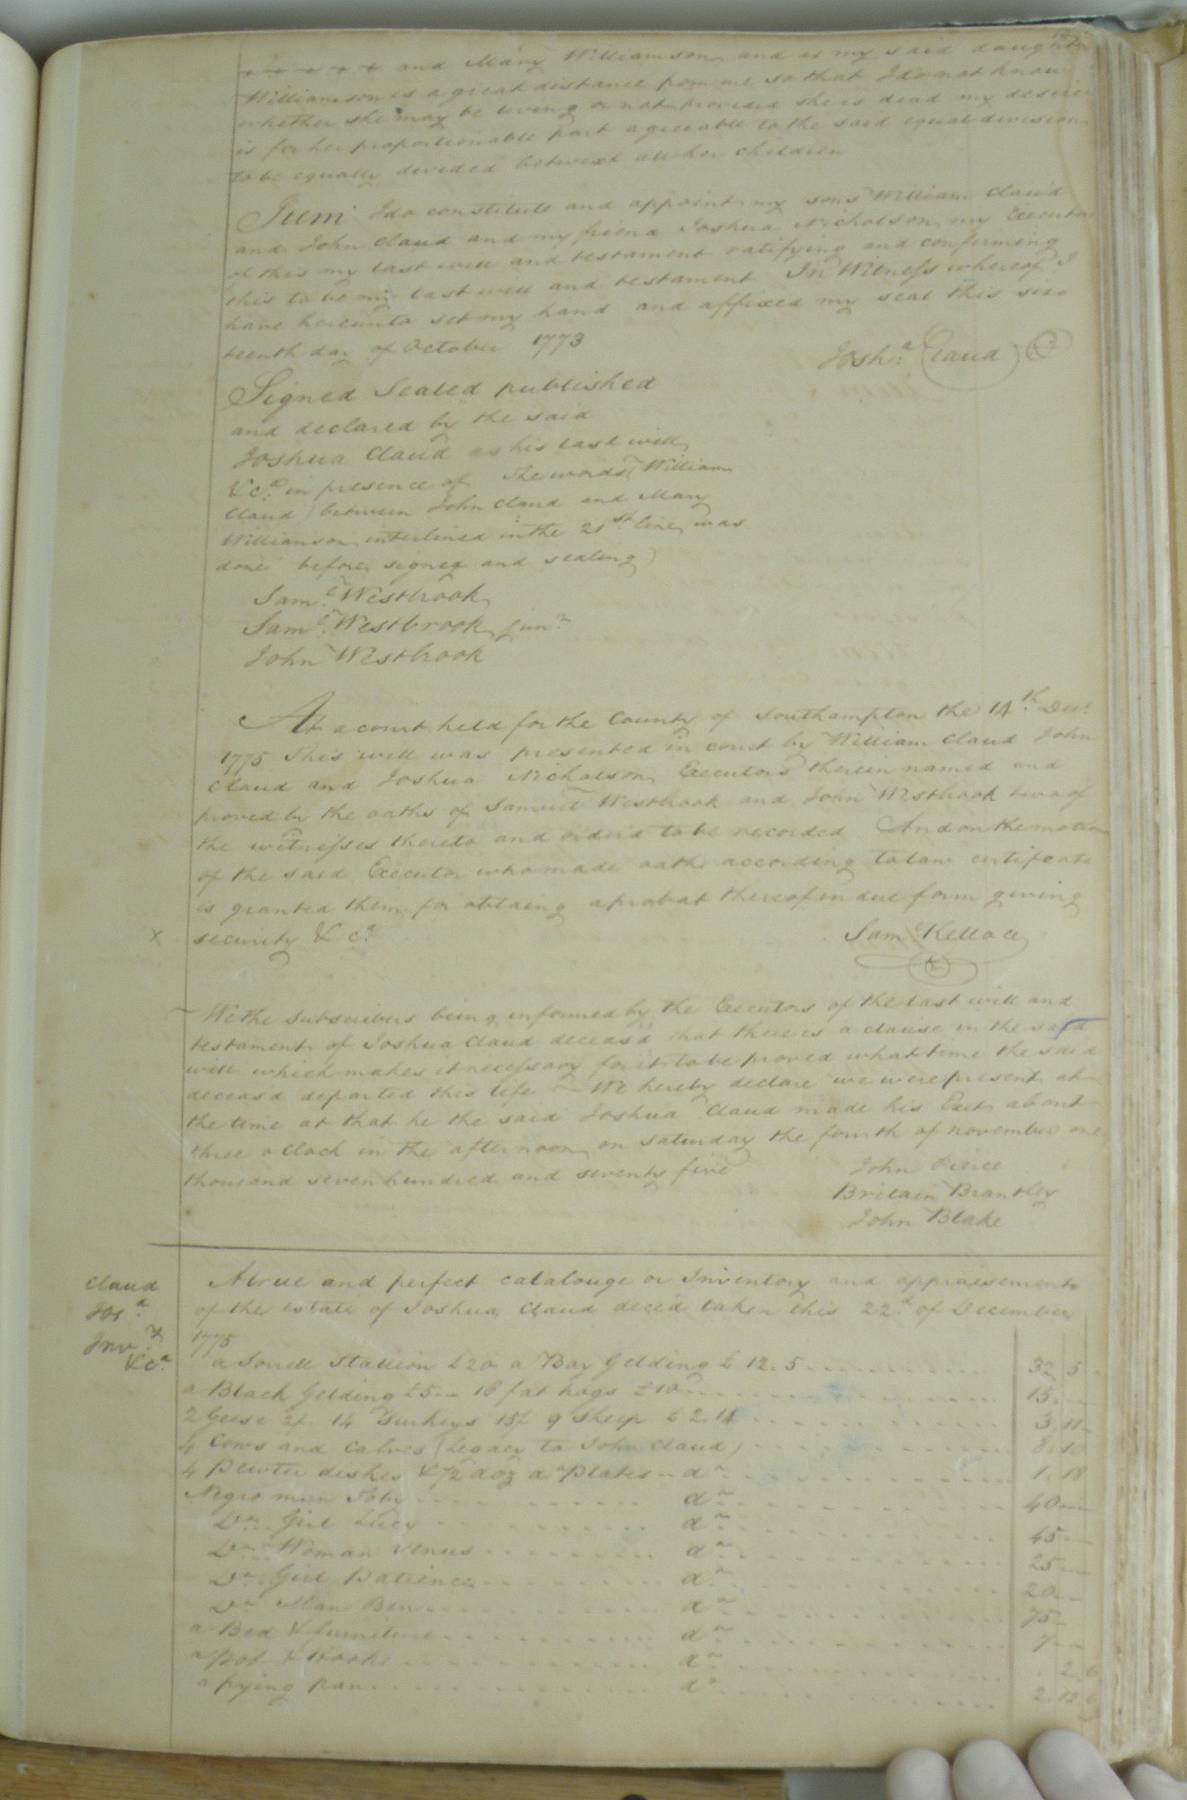 + + + + + and Mary Williamson and as my said daughter
Williamson is a great distance from me so that I do not know
whether she may be living or not provided she is dead my desire
is for her proportionable part agreeable to the said equal division
to be equally divided betwixt all her children
Item I do constitute and appoint my sons William Claud
and John Claud and my friend Joshua Nicholson my Executors
of this my last will and testament ratifying and confirming
this to be my last will and testament In Witness whereof I
have hereunto set my hand and affixed my seal this
teenth day of October 1773
Josha. Claud
Signed Sealed published
and declared by the said
Joshua Claud as his last will
&ca. in presence of The words (William
Claud) between John Claud and Mary
Williamson interlined in the 21st line was
done before signed and sealing)
Saml. Westbrook
Saml. Westbrook junr.
John Westbrook
At a court held for the County of Southampton the 14th. Decr.
1775 This will was presented in court by William Claud John
Claud and Joshua Nicholson Executors therein named and
proved by the oaths of Samuel Westbrook and John Westbrook two of
the witnesses thereto and orderd to be recorded And on the motion
of the said Executor who made oath according to law certificate
is granted them for obtaing a probat thereof in due form giving
x security &ca.
Sam Kello
We the Subscribers being informed by the Executors of the last will and
testament of Joshua Claud deceasd that there is a clause in the said
will which makes it necessary for it to be proved what time the said
deceasd departed this life — We hereby declare we were present at
the time at that he the said Joshua Claud made his Exit about
three o Clock in the afternoon on Saturday the fourth of November one
thousand seven hundred and seventy five
John Pierce
Britain Brantley
John Blake
Claud
Josa.
Invy.
&ca.
A true and perfect catalouge or Inventory and appraisement
of the estate of Joshua Claud decid taken this 22d. of December
1775
a Sorrell Stallion £20 a Bay Gelding £12.5 32 5
a Black Gelding £5 — 16 fat hogs £10 15
2 Geese 2/. 14 Turkeys 15/ 9 Sheep £2.14 3.11
4 Cows and Calves (Legacy to John Claud) 8.10
4 Pewter dishes & 1/2 doz do Plates — do. 1.18
Negro man Toby do. 40
Do. Girl Lucy do. 45
Do. Woman Venus do. 25
Do. Girl Patience do. 20
Do. Man Ben do. 75
a Bed & furniture do. 7
a Pot & Hooks do.
a frying Pan do. 2